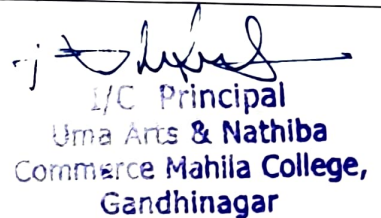 I/C Principal
Uma Arts & Nathiba
Commerce Mahila College,
Gandhinagar